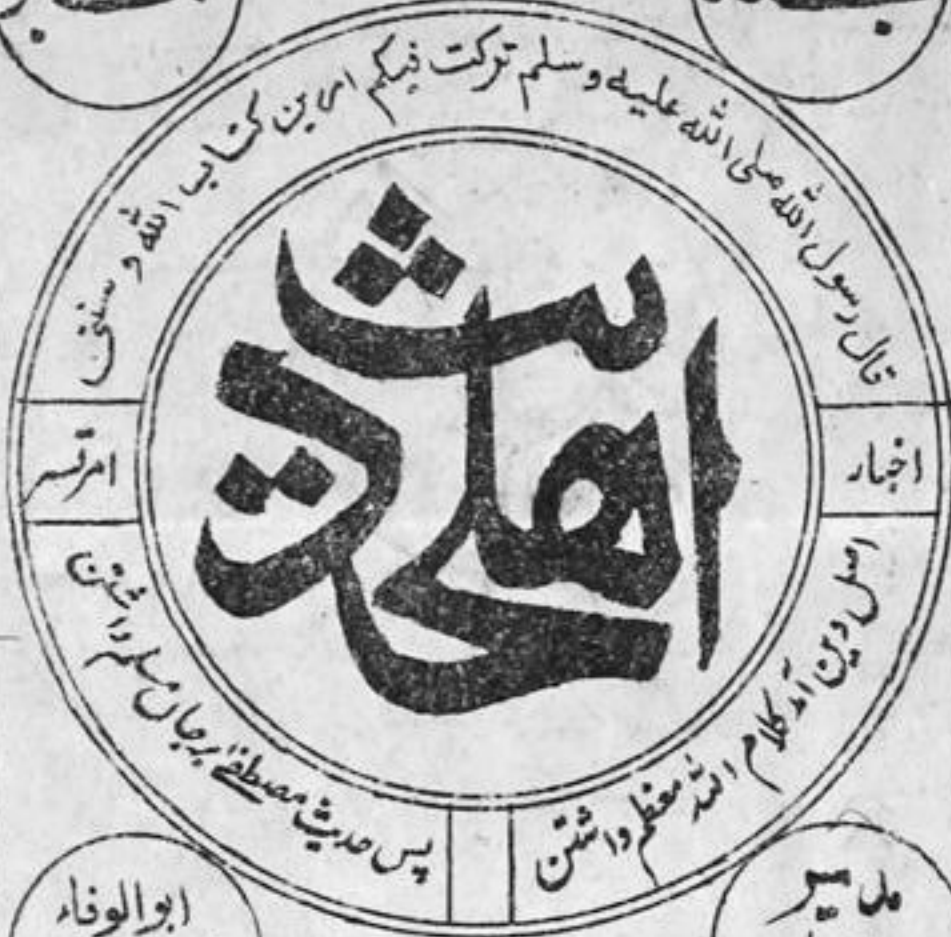 قال رسول الله صلی الله علیه وسلم ترکت فیکم امرین کتاب الله و سنتی
اهلحدیث
اخبار
امرتسر
اصل دین آمد کلام الله معظم داشتن
پس حدیث مصطفےٰ بر جان مسلم داشتن
مدیر
ابوالوفاء